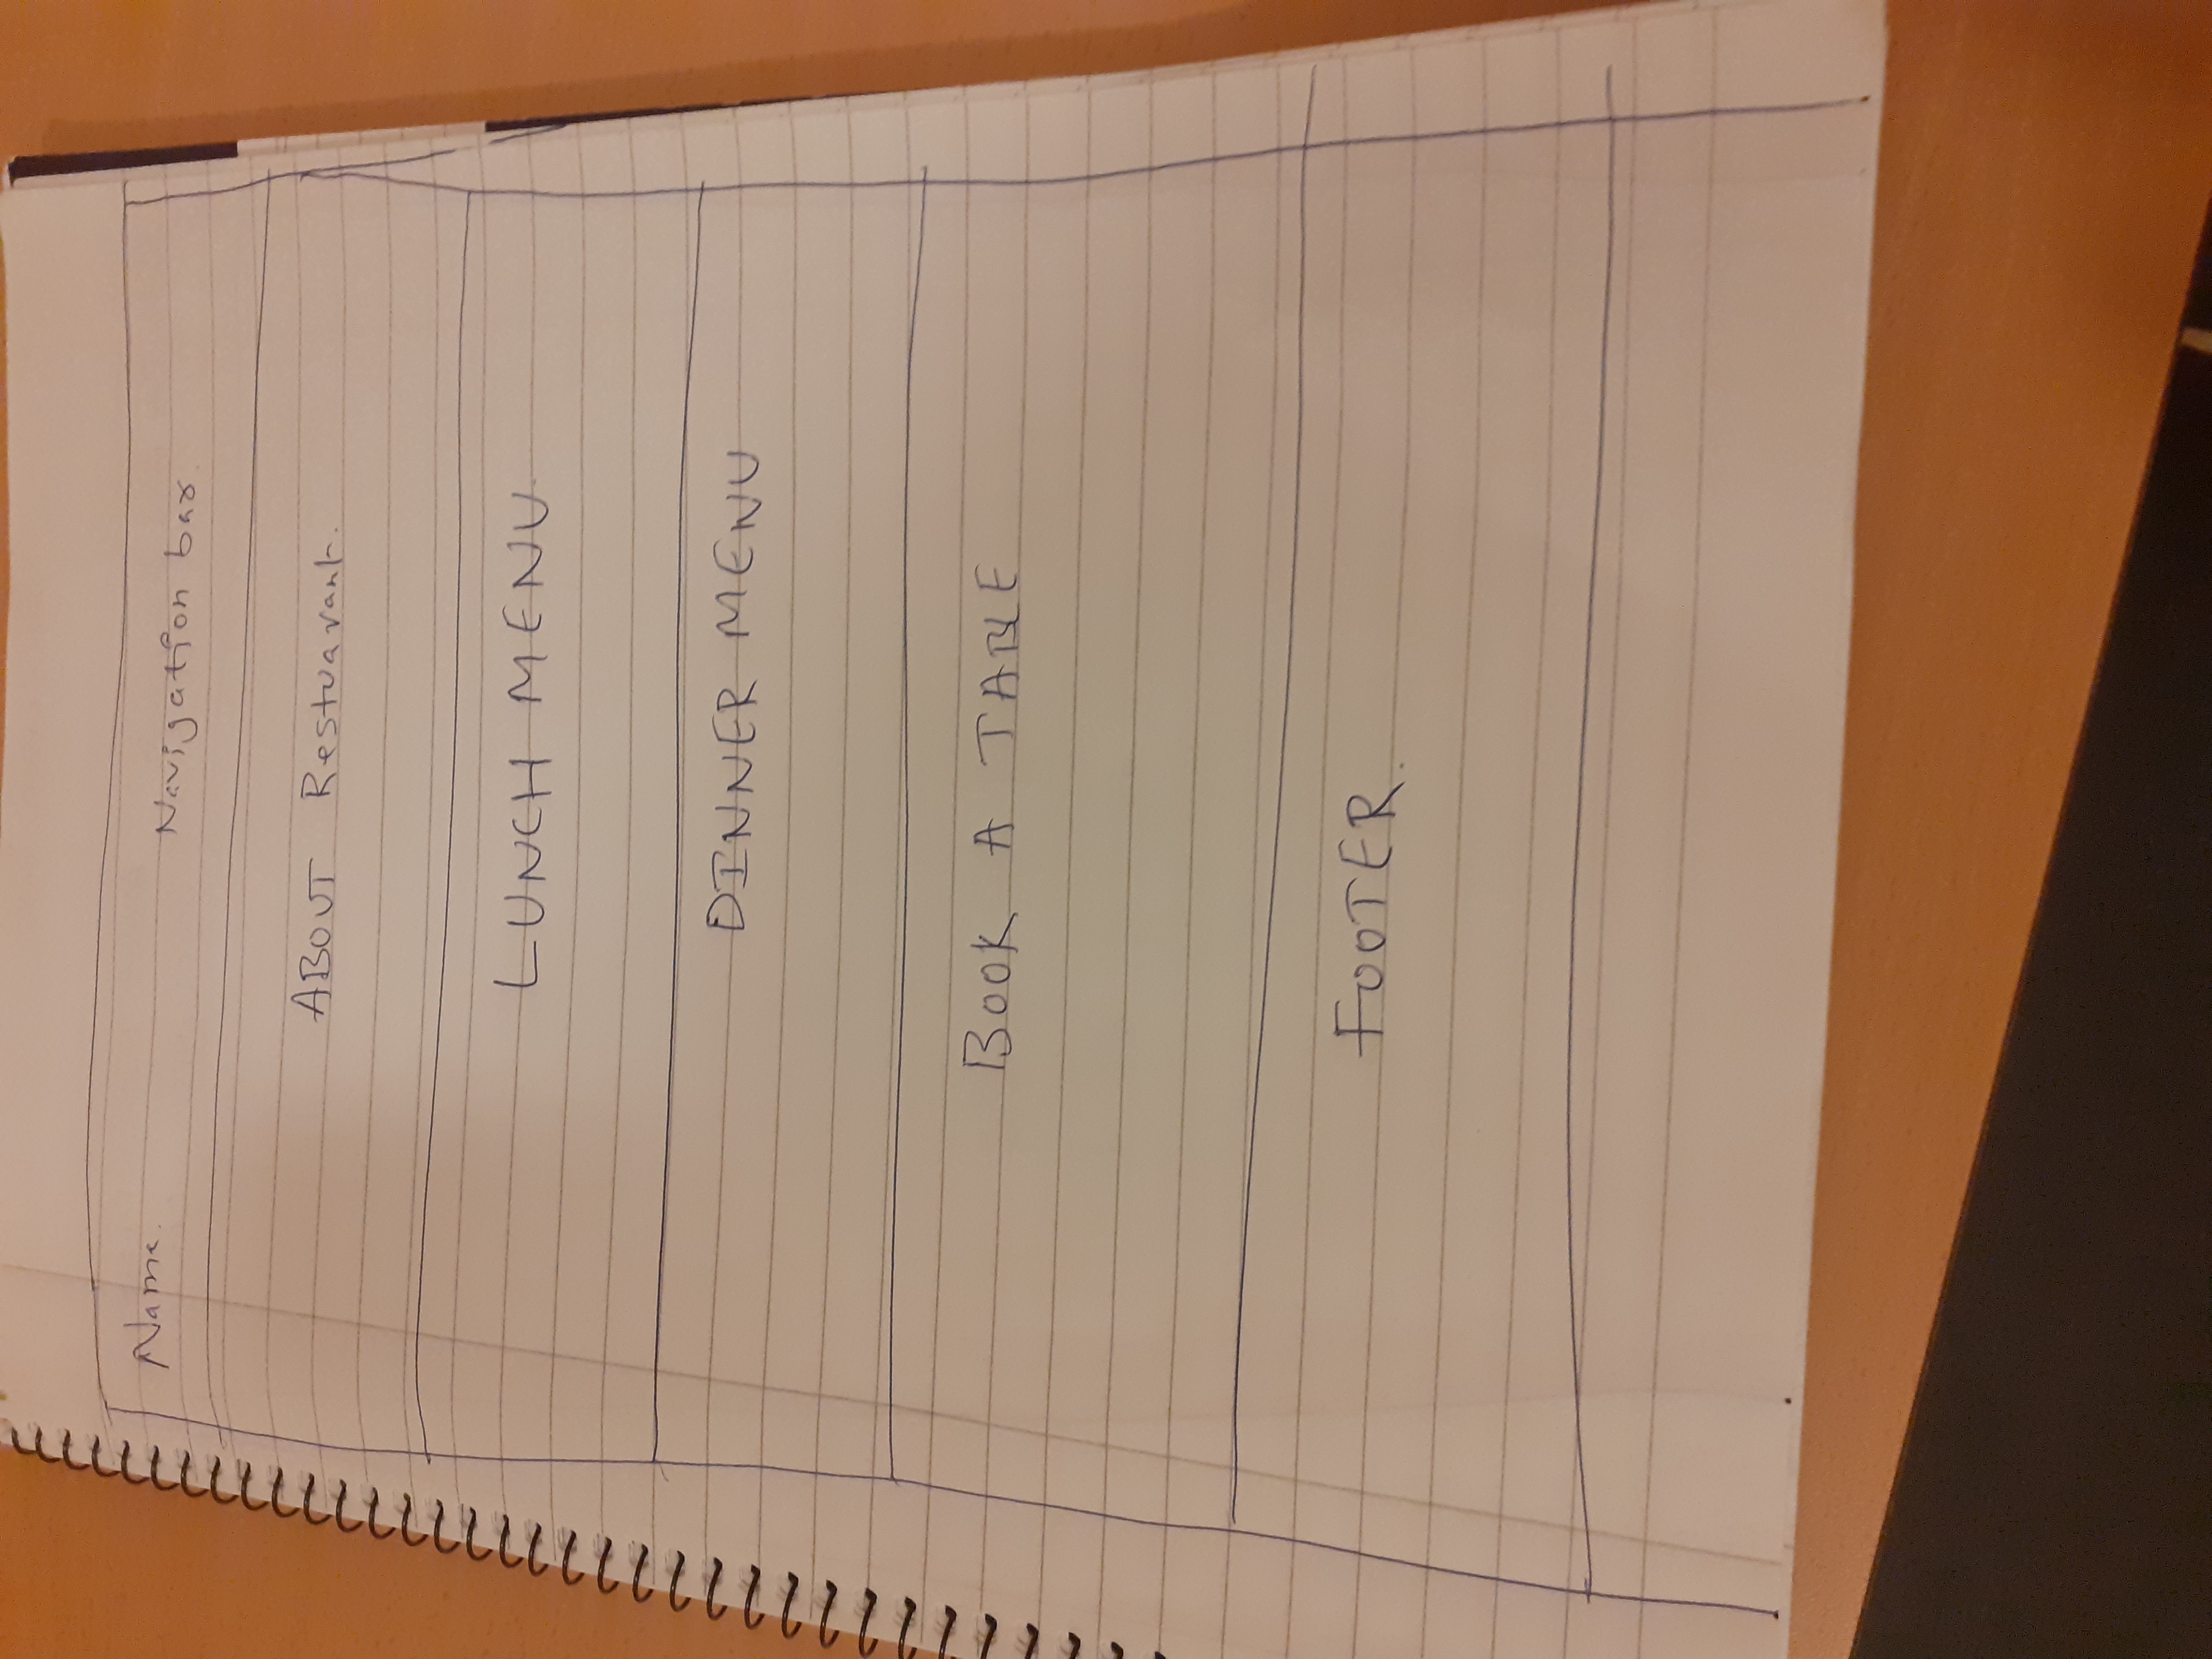 Name. Navigation bar.
ABOUT Restuarant.
LUNCH MENU
DINNER MENU
BOOK A TABLE
FOOTER.